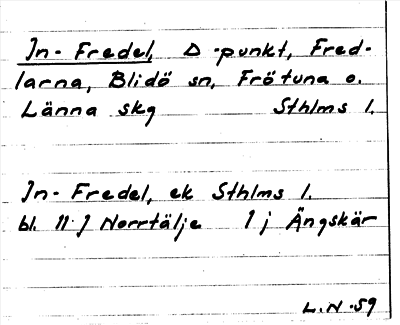 In- Fredel, Δ -punkt, Fred-
larna, Blidö sn, Frötuna o.
Länna skg Sthlms l.
In- Fredel, ek Sthlms l.
bl. 11 J Norrtälje 1 j Ängskär
L.N -59